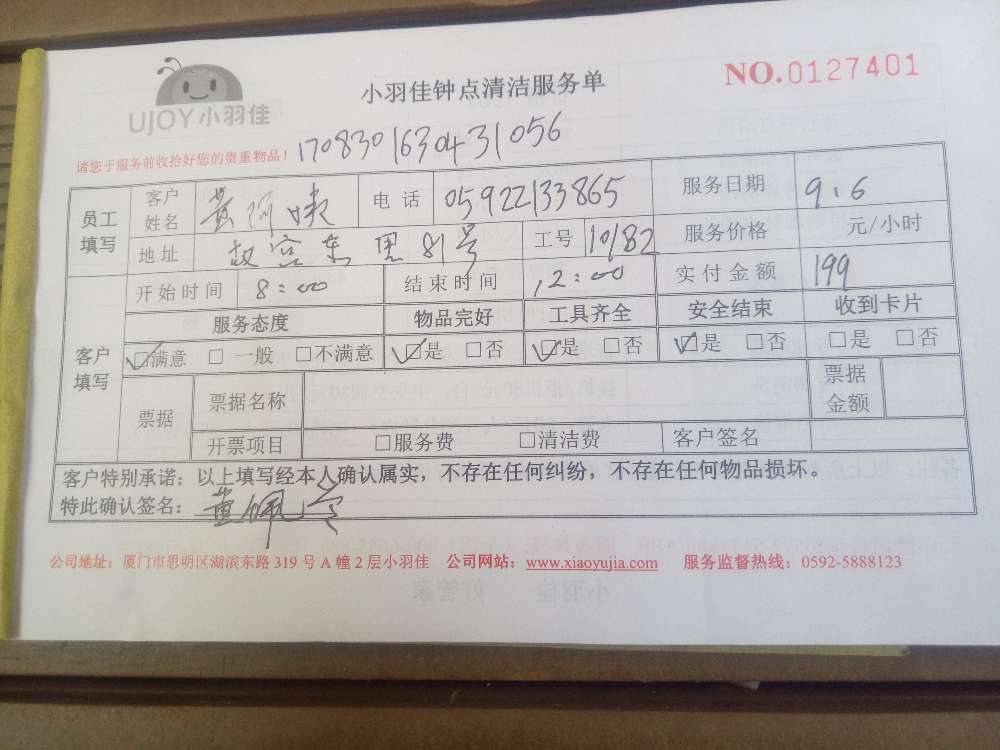 UJOY小羽佳
小羽佳钟点清洁服务单
NO.0127401
请您于服务前收拾好您的贵重物品!
170830163043 1056
员工填写 客户姓名 黄阿姨 电话 05922133865 服务日期 9.6
地址 故宫东里81号 工号 10182 服务价格 元/小时
客户填写 开始时间 8:00 结束时间 12:00 实付金额 199
服务态度 物品完好 工具齐全 安全结束 收到卡片
☑满意 □ 一般 □不满意 ☑是 □否 ☑是 □否 ☑是 □否 □是 □否
票据 票据名称 票据金额
开票项目 □服务费 □清洁费 客户签名
客户特别承诺:以上填写经本人确认属实,不存在任何纠纷,不存在任何物品损坏。
特此确认签名:黄佩
公司地址:厦门市思明区湖滨东路 319 号 A 幢 2 层小羽佳 公司网站:www.xiaoyujia.com 服务监督热线:0592-5888123